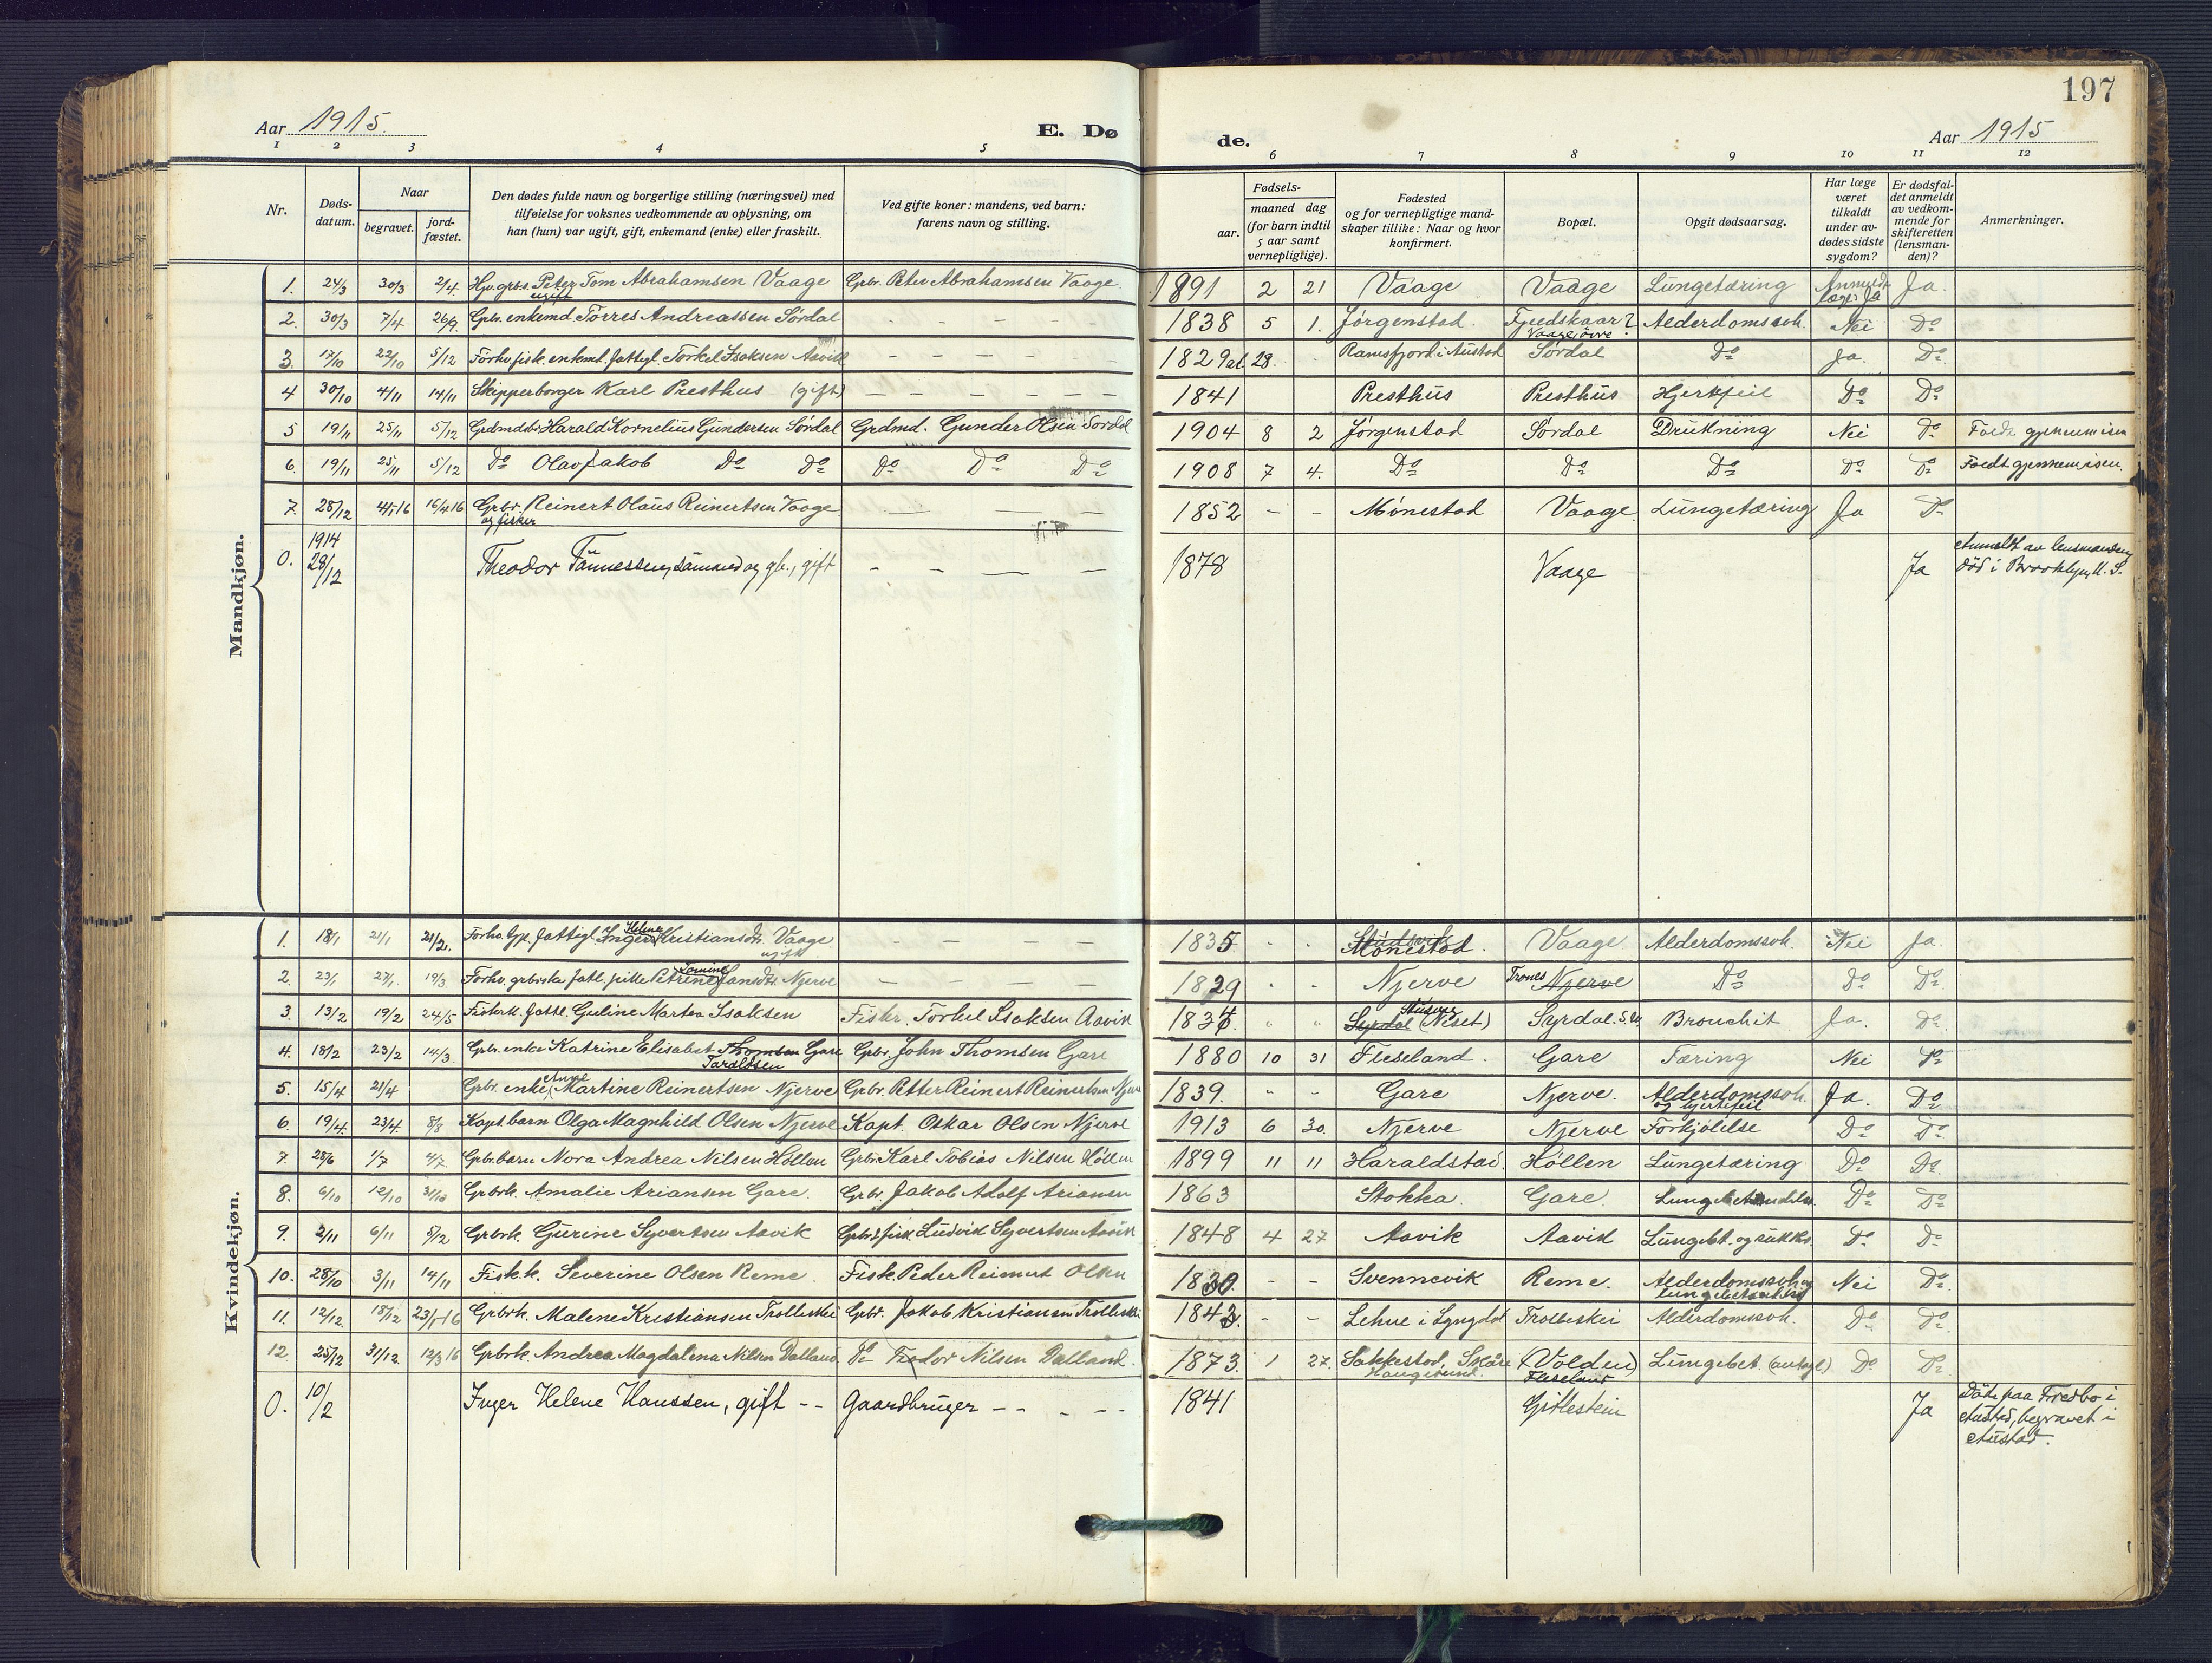 197
Aar 1915. E. Dø de. Aar 1915
1 2 3 4 5 6 7 8 9 10 11 12
Nr. Døds-datum. Naar begravet. jord-fæstet. Den dødes fulde navn og borgerlige stilling (næringsvei) med tilføielse for voksnes vedkommende av oplysning, om han (hun) var ugift, gift, enkemand (enke) eller fraskilt. Ved gifte koner: mandens, ved barn: farens navn og stilling. Fødsels- aar. maaned dag (for barn indtil 5 aar samt vernepligtige). Fødested og for vernepligtige mand-skaper tillike: Naar og hvor konfirmert. Bopæl. Opgit dødsaarsag. Har læge været tilkaldt under av-dødes sidste sygdom? Er dødsfal-det anmeldt av vedkom-mende for skifteretten (lensman-den)? Anmerkninger.
Mandkjøn.
1. 24/3 30/3 2/4. Hjv. grbs. Peter Tom Abrahamsen Vaage ugift Grbr. Peter Abrahamsen Vaage. 1891 2 21 Vaage Vaage Lungetæring Ja Ja.
2. 30/3 7/4 26/9. Grbr. enkemd. Tørres Andreassen Sørdal – – – – 1838 5 1. Jørgenstad. Fjeldskaar? Vaage øvre. Alderdomssvh. Nei Do
3. 17/10 22/10 5/12 Forhv. fisk. enkemd. fattigl. Torkel Isaksen Aavik – – – – 1829 28. Ramsfjord i Austad Sørdal Do Ja. Do
4 30/10 4/11 14/11 Skipperborger Karl Presthus (gift) – – – – – – 1841 Presthus Presthus Hjertfeil Do Do
5 19/11 25/11 5/12 Grdmdsbr. Harald Kornelius Gundersen Sørdal Grdmd. Gunder Olsen Sørdal 1904 8 2 Jørgenstad Sørdal Drukning Nei Do Faldt gjennem isen
6. 19/11 25/11 5/12 Do Olav Jakob Do Do Do Do Do 1908 7 4. Do Do Do Do Do Faldt gjennem isen.
7. 28/12 4/1 16 16/4 16 Grbr. Reinert Olaus Reinertsen Vaage og fisker – – – 1852 - - Mønestad Vaage. Lungetæring Ja Do
0. 1914 28/12 Theodor Tønnessen, sømand og gb., gift – – — – 1878 Vaage Ja Anmeldt av lensmanden, død i Brooklyn, U. S.
Kvindekjøn.
1. 18/1 21/1 21/2. Forhv. tjp. fattigl. Inger Helene Kristiansdr. Vaage ugift – – – – 1835 - - Mønestad. Vaage Alderdomssvh. Nei Ja.
2. 23/1 27/1. 19/3. Forhv. grbrska. fatl. Petrine Tomine Jansdr. Njerve – – – – 1829 - - Njerve Trones Njerve Do Do Do
3. 13/2 19/2 24/5 Fiskerk. fattl. Guline Martea Isaksen Fisker. Torkel Isaksen Aavik 1834 " " Syrdal (Neset) Syrdal. Bronchit Ja. Do
4. 18/2 23/2 14/3. Grbr. enke Katrine Elisabet Thomsen Gare Taraldsen Grbr. John Thomsen Gare 1880 10 31 Fleseland. Gare Tæring Nei Do
5. 15/4 21/4 Grbr. enke Anne Martine Reinertsen Njerve Grbr. Petter Reinert Reinertsen Njerve 1839. - - Gare Njerve. Alderdomssvh. og hjertefeil Ja. Do
6. 19/4. 23/4. 8/8 Kapt. barn Olga Magnhild Olsen Njerve Kapt. Oskar Olsen Njerve 1913 6 30. Njerve Njerve Forkjølelse Do Do
7. 28/6 1/7 4/7. Grbr. barn Nora Andrea Nilsen Høllen Grbr. Karl Tobias Nilsen Høllen 1899 11 11 Haraldstad. Høllen Lungetæring Do Do
8. 6/10 12/10 31/10 Grbrk. Amalie Ariansen Gare. Grbr. Jakob Adolf Ariansen 1863 Stokka. Gare. Lungebetændelse. Do Do
9. 2/11 6/11 5/12 Grbrk. Gurine Syvertsen Aavik Grbr. & fisk. Ludvik Syvertsen Aavik 1848 4 27 Aavik Aavik Lungebt. og sukks. Do Do
10. 28/10 3/11 14/11 Fisk.k. Severine Olsen Reme. Fisk. Peder Reinert Olsen 1830. - - Svennevik Reme. Alderdomssvh. og lungebetændelse Nei Do
11. 12/12 18/12 23/1-16 Grbrk. Malene Kristiansen Trolleskei Grbr. Jakob Kristiansen Trolleskei 1843. - - Lehne i Lyngdal Trolleskei Alderdomssvh. Do Do
12. 25/12 31/12. 12/3 16 Grbrk. Andrea Magdalena Nilsen Dalland. Do Teodor Nilsen Dalland. 1873. 1 27. Sakkestad, Skåre Haugesund. (Volden) Fleseland Lungebet. (antagl) Do Do
0. 10/2 Inger Helene Hanssen, gift -- Gaardbruger -- - -- 1841 Gitlestein Ja Døde paa Fredbo i Austad, begravet i Austad.